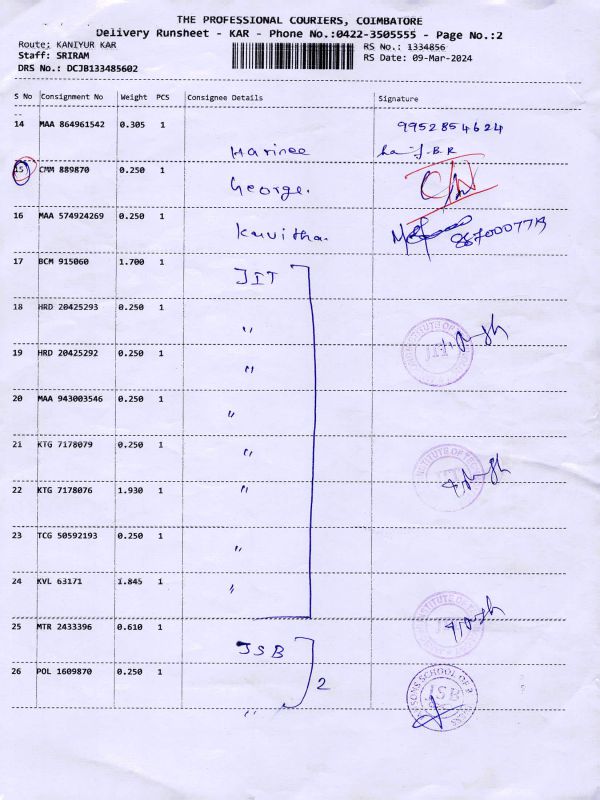 THE PROFESSIONAL COURIERS, COIMBATORE
Delivery Runsheet - KAR - Phone No.:0422-3505555 - Page No.:2
Route: KANIYUR KAR
RS No.: 1334856
Staff: SRIRAM
RS Date: 09-Mar-2024
DRS No.: DCJB133485602
S No Consignment No Weight PCS Consignee Details Signature
14 MAA 864961542 0.305 1 9952854624
Harinee
15 CMM 889870 0.250 1
George.
16 MAA 574924269 0.250 1
Kavitha. 8870007713
17 BCM 915060 1.700 1 JIT
18 HRD 20425293 0.250 1
"
19 HRD 20425292 0.250 1 JIT
"
20 MAA 943003546 0.250 1
"
21 KTG 7178079 0.250 1
"
22 KTG 7178076 1.930 1 "
23 TCG 50592193 0.250 1
"
24 KVL 63171 1.845 1
"
25 MTR 2433396 0.610 1
JSB
26 POL 1609870 0.250 1
2
JSB
"